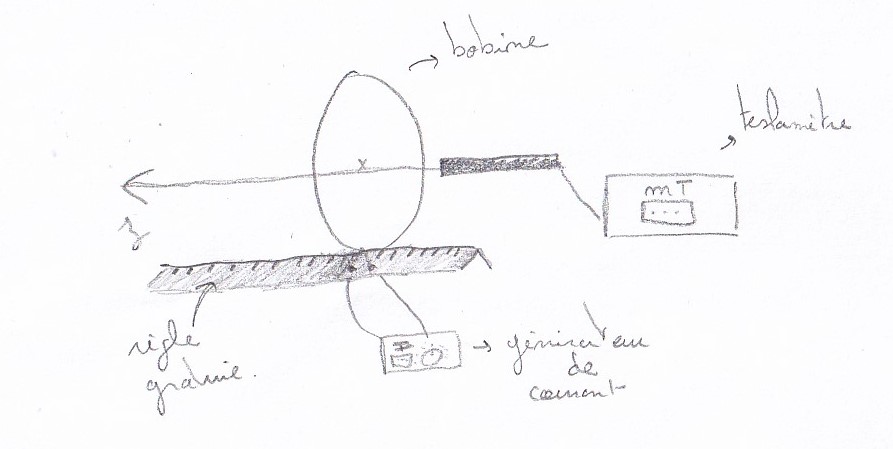 bobine
teslamètre
x
mT
...
z
I
règle
graduée.
générateur
de
courant